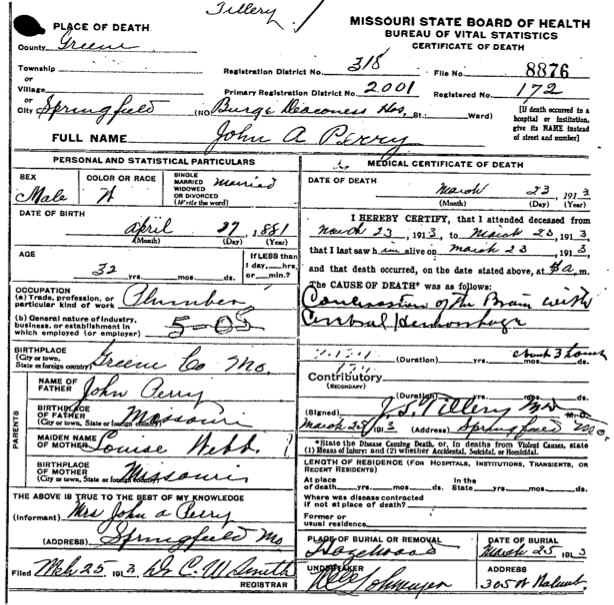 Tillery
PLACE OF DEATH
County Greene
Township
or
Village
or
City Springfield (NO Burge Deaconess Hos. St.; Ward)
FULL NAME John A Perry
MISSOURI STATE BOARD OF HEALTH
BUREAU OF VITAL STATISTICS
CERTIFICATE OF DEATH
Registration District No. 318 File No. 8876
Primary Registration District No. 2001 Registered No. 172
[If death occurred in a
hospital or institution,
give its NAME instead
of street and number]
PERSONAL AND STATISTICAL PARTICULARS
SEX
Male
COLOR OR RACE
W
SINGLE
MARRIED
WIDOWED
OR DIVORCED
(Write the word)
Married
DATE OF BIRTH
April 27, 1881
(Month) (Day) (Year)
AGE
32 yrs. mos. ds.
If LESS than
1 day, hrs.
or min.?
OCCUPATION
(a) Trade, profession, or
particular kind of work Plumber
(b) General nature of industry,
business, or establishment in
which employed (or employer)
5-05
BIRTHPLACE
(City or town,
State or foreign country) Greene Co Mo.
PARENTS
NAME OF
FATHER John Perry
BIRTHPLACE
OF FATHER
(City or town, State or foreign country) Missouri
MAIDEN NAME
OF MOTHER Louise Webb
BIRTHPLACE
OF MOTHER
(City or town, State or foreign country) Missouri
THE ABOVE IS TRUE TO THE BEST OF MY KNOWLEDGE
(Informant) Mrs John A Perry
(ADDRESS) Springfield Mo
Filed Mch 25, 1913 Dr C. W. Smith
REGISTRAR
MEDICAL CERTIFICATE OF DEATH
DATE OF DEATH
March 23, 1913
(Month) (Day) (Year)
I HEREBY CERTIFY, that I attended deceased from
March 23, 1913, to March 23, 1913,
that I last saw him alive on March 23, 1913,
and that death occurred, on the date stated above, at 8 a.m.
The CAUSE OF DEATH* was as follows:
Concussion of the Brain with
Cerebral Hemorrhage
about 3 hours
(Duration) yrs. mos. ds.
Contributory
(SECONDARY)
(Duration) yrs. mos. ds.
(Signed) J. S. Tillery MD M. D.
March 25, 1913 (Address) Springfield Mo.
*State the Disease Causing Death, or, in deaths from Violent Causes, state
(1) Means of Injury; and (2) whether Accidental, Suicidal, or Homicidal.
LENGTH OF RESIDENCE (FOR HOSPITALS, INSTITUTIONS, TRANSIENTS, OR
RECENT RESIDENTS)
At place
of death yrs. mos. ds.
In the
State yrs. mos. ds.
Where was disease contracted
if not at place of death?
Former or
usual residence
PLACE OF BURIAL OR REMOVAL
Hazelwood
DATE OF BURIAL
March 25, 1913
UNDERTAKER
ADDRESS
305 W Walnut